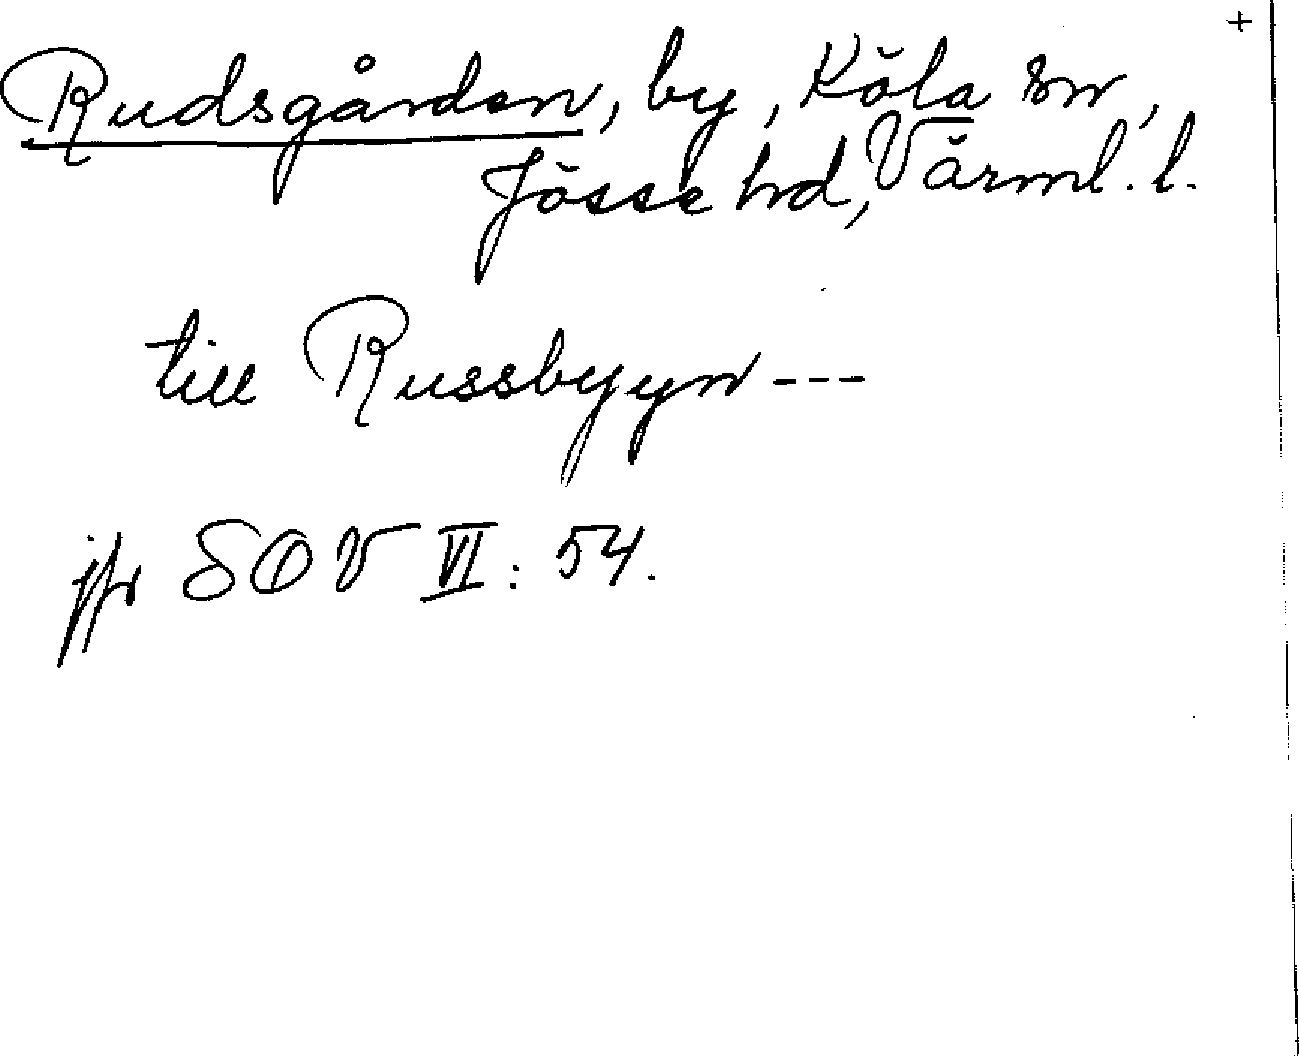 +
Rudsgården, by, Köla sn,
Jösse hd, Värml. l.
till Russbyyn ---
jfr SOV VI: 54.